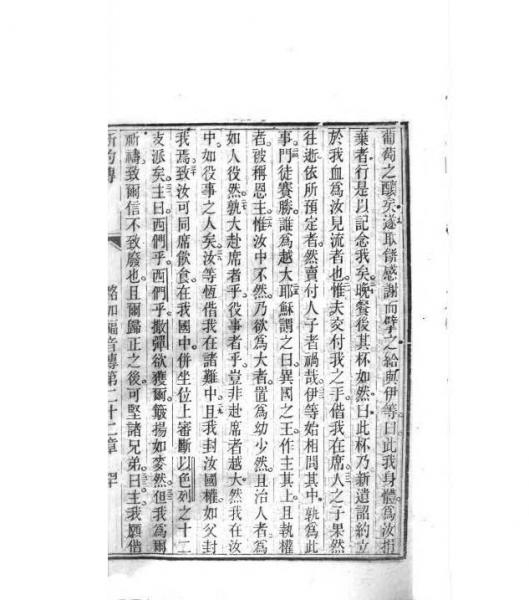 葡萄之釀矣遂取餅感謝而擘之給與伊等曰此我身體爲汝捐
棄者行是以記念我矣晚餐後其杯如然曰此杯乃新遺詔約立
於我血爲汝見流者也惟夫交付我之手偕我在席人之子果然
往逝依所預定者然賣付人子者禍哉伊等始相問其中孰爲此
事門徒賽勝誰爲越大耶穌謂之曰異國之王作主其上且執權
者被稱恩主惟汝中不然乃欲爲大者置爲幼少然且治人者爲
如人役然孰大赴席者乎役事者乎豈非赴席者越大然我在汝
中如役事之人矣汝等恆偕我在諸難中且我封汝國權如父封
我焉致汝可同席飲食在我國中併坐位上審斷以色列之十二
支派矣主曰西們乎西們乎撒彈欲獲爾簸揚如麥然但我爲爾
祈禱致爾信不致廢也且爾歸正之後可堅諸兄弟曰主我願偕
路加福音傳第二十二章